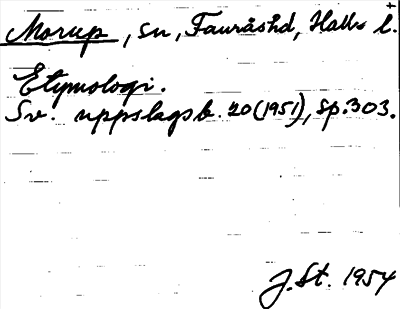 Morup, sn, Fauråshd, Halls l.
Etymologi.
Sv. uppslagsb. 20 (1951), sp. 303.
J. St. 1954